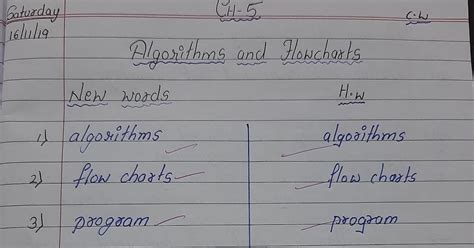 Saturday CH-5 C.W
16/11/19
Algorithms and Flowcharts
New words H.W
1) algorithms algorithms
2) flow charts flow charts
3) program program